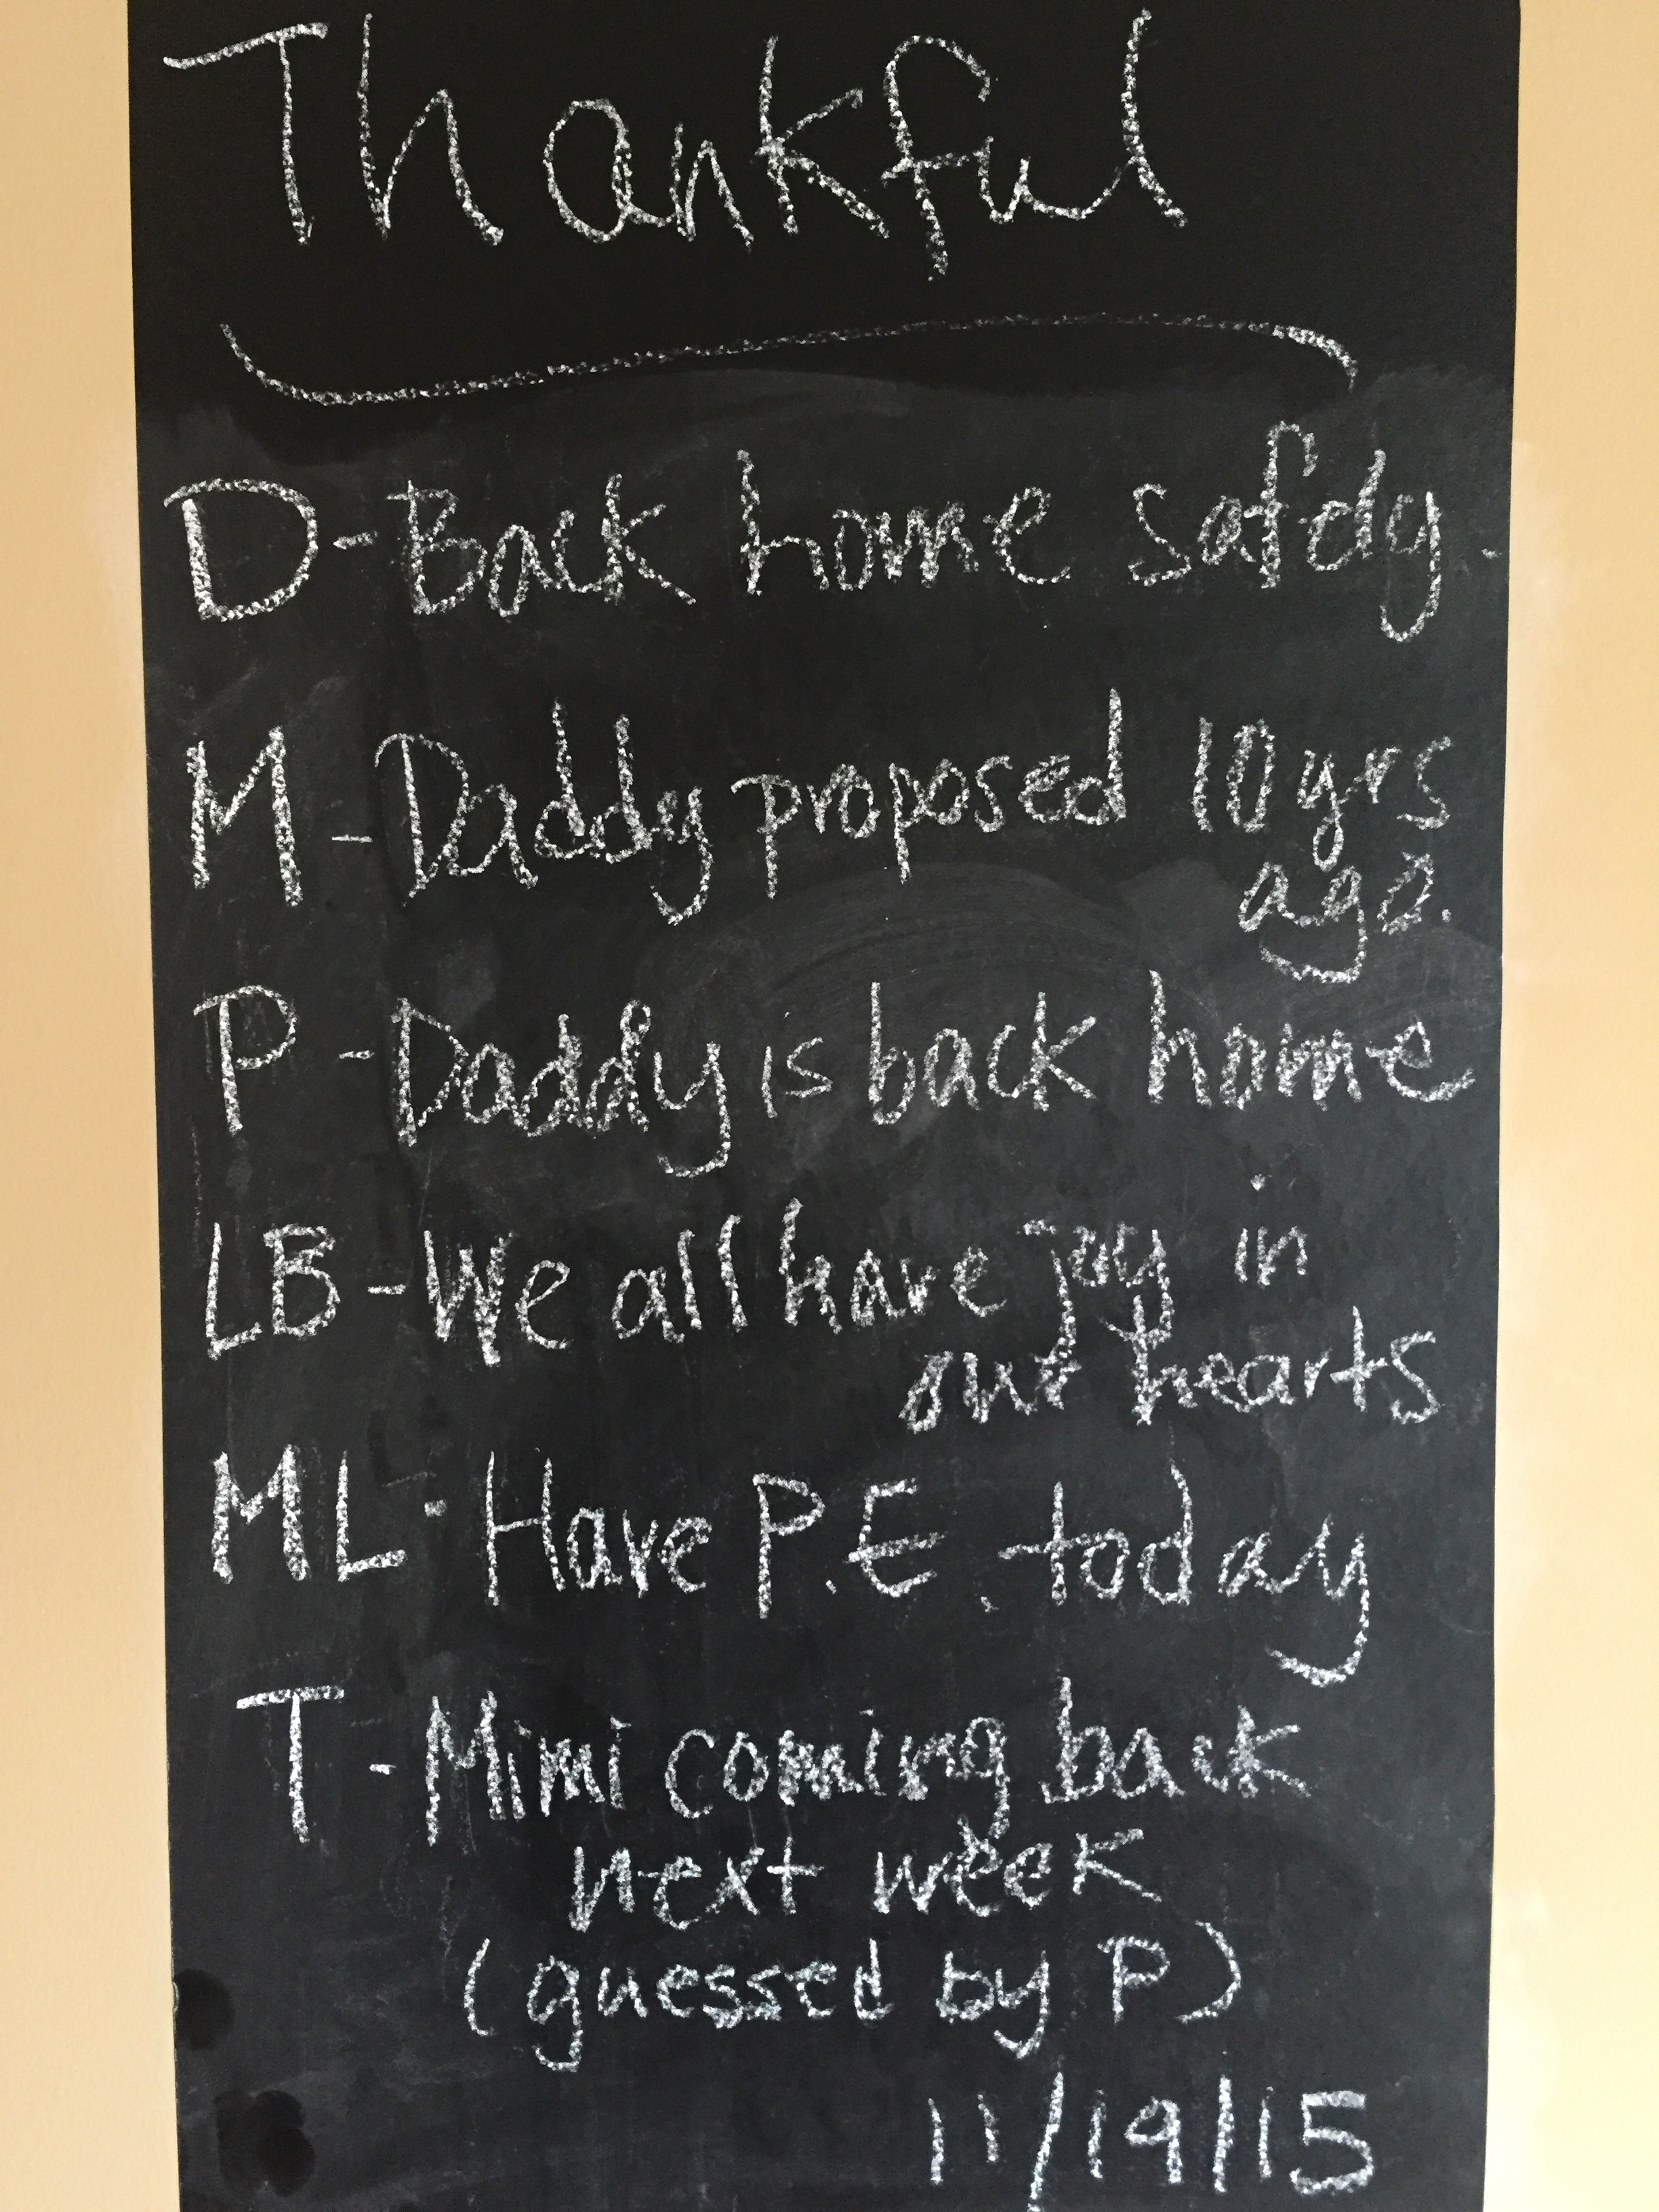 Thankful
D-Back home safely.
M-Daddy proposed 10yrs
ago.
P-Daddy is back home
LB-We all have joy in
our hearts
ML-Have P.E. today
T-Mimi coming back
next week
(guessed by P)
11/19/15